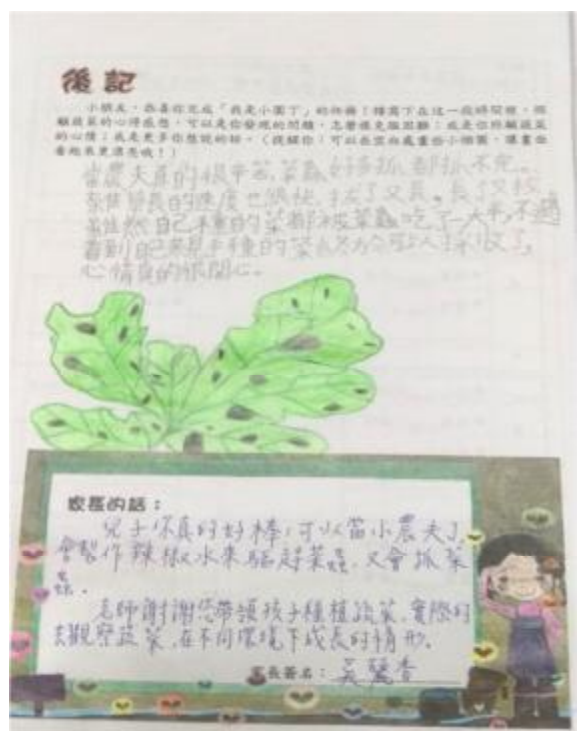 後記
小朋友,恭喜你完成「我是小園丁」的任務!請寫下在這一段時間裡,照
顧蔬菜的心得感想,可以是你發現的問題,怎麼樣克服困難;或是你照顧蔬菜
的心情;或是更多你想說的話。(提醒你:可以在空白處畫些小插圖,讓畫面
看起來更漂亮哦!)
當農夫真的很辛苦,菜蟲好多抓都抓不完。
生長的速度也很快,拔了又長,長了又拔
雖然自己種的菜都被菜蟲吃了一大半,不過
看到自己親手種的菜終於可以採收了,
心情真的很開心。
家長的話:
兒子你真的好棒,可以當小農夫了,
會製作辣椒水來驅趕菜蟲,又會抓菜
蟲。
老師謝謝您帶領孩子種植蔬菜,實際的
去觀察蔬菜,在不同環境下成長的情形。
家長簽名:吳麗香